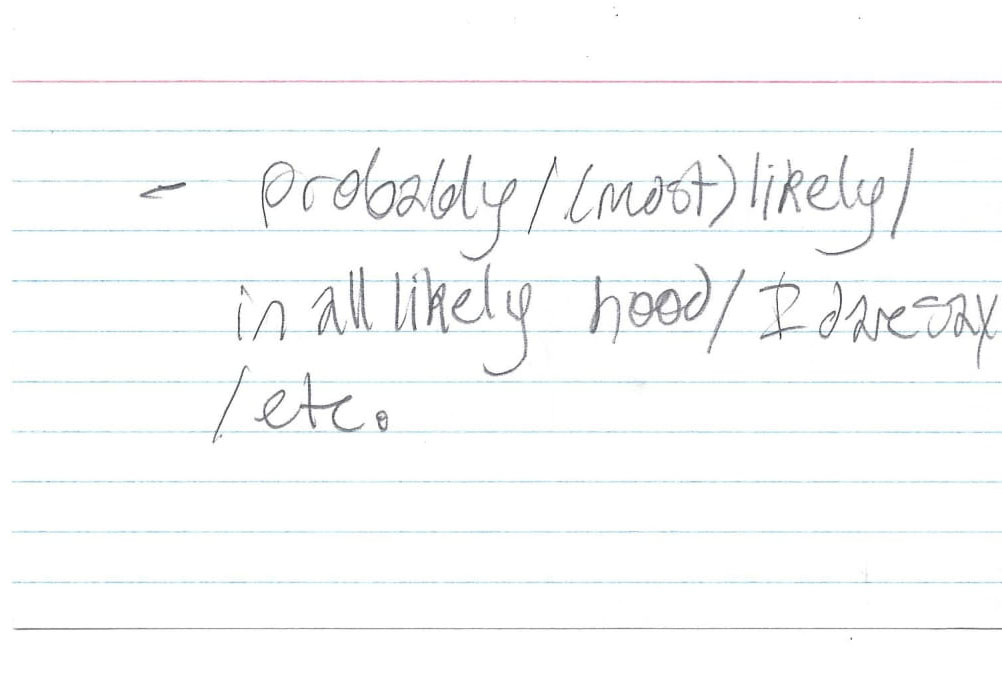 - probably/(most)likely/
in all likely hood/I daresay
/etc.